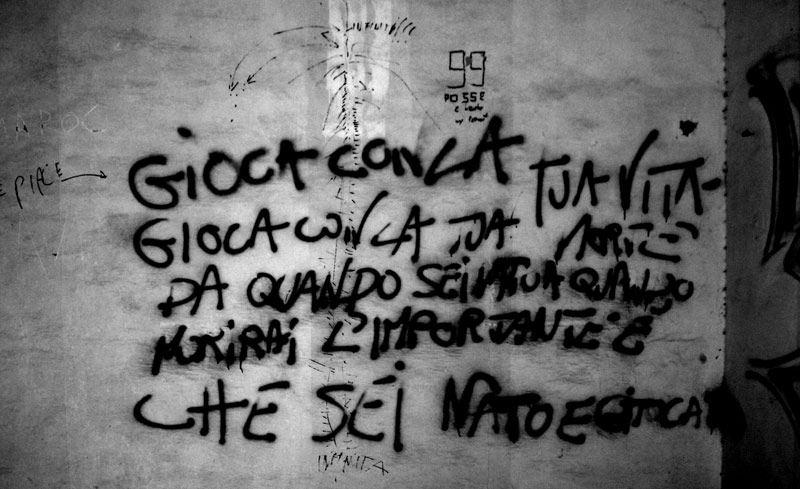 99
POSSE
E PIACE
GIOCA CON LA TUA VITA
GIOCA CON LA TUA MORTE
DA QUANDO SEI NATO A QUANDO
MORIRAI L'IMPORTANTE È
CHE SEI NATO E GIOCA